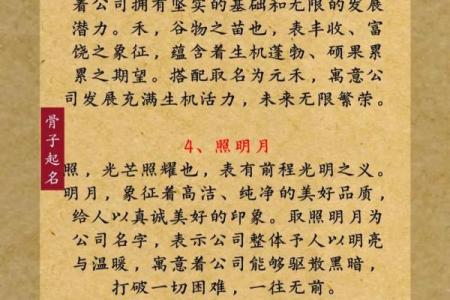 着公司拥有坚实的基础和无限的发展
潜力。禾，谷物之苗也，表丰收、富
饶之象征，蕴含着生机蓬勃、硕果累
累之期望。搭配取名为元禾，寓意公
司发展充满生机活力，未来无限繁荣。
骨子起名
4、照明月
照，光芒照耀也，表有前程光明之义。
明月，象征着高洁、纯净的美好品质，
给人以真诚美好的印象。取照明月为
公司名字，表示公司整体予人以明亮
与温暖，寓意着公司能够驱散黑暗，
打破一切困难，一往无前。